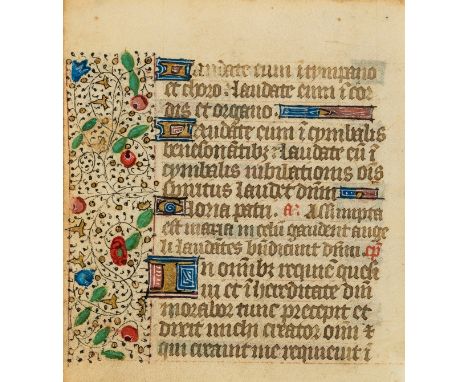 Laudate eum i tympano
et choro. laudate eum i cor
dis et organo.
Laudate eum i cymbalis
benesonātibz laudate eū i
cymbalis iubilationis oīs
spiritus laudet dnm
Gloria patri. a: Assumpta
est maria in celū gaudent ange
li laudātes bn̄dicunt dn̄m. cp̄
In omībz requiē quesi
ui et i hereditate dn̄i
morabor tunc precepit et
dixit michi creator oim et
qui creauit me requieuit i